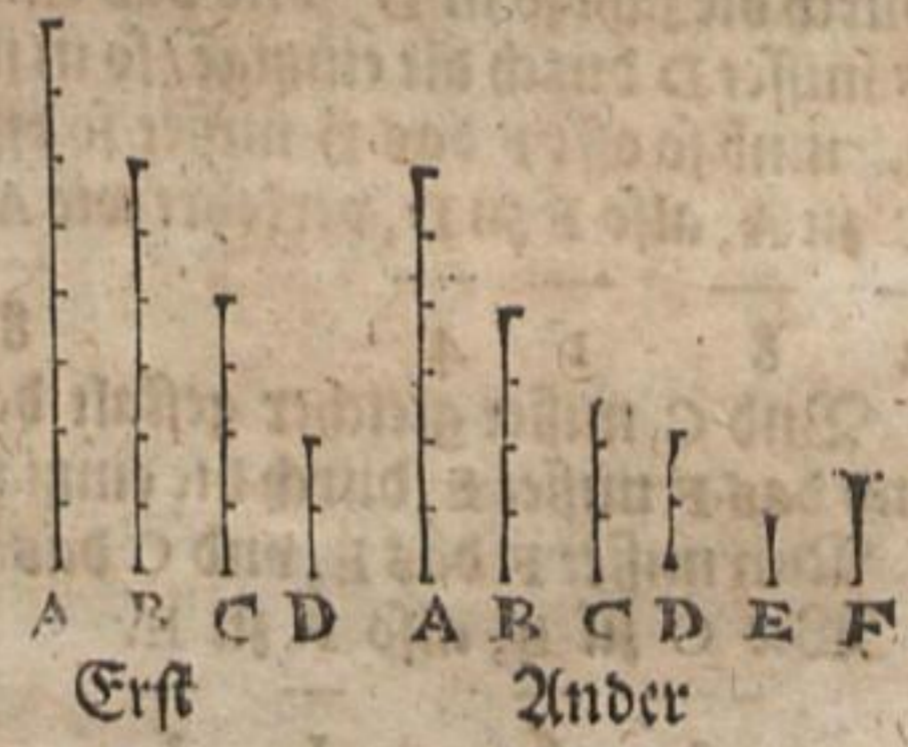 A B C D A B C D E F
Erst Ander